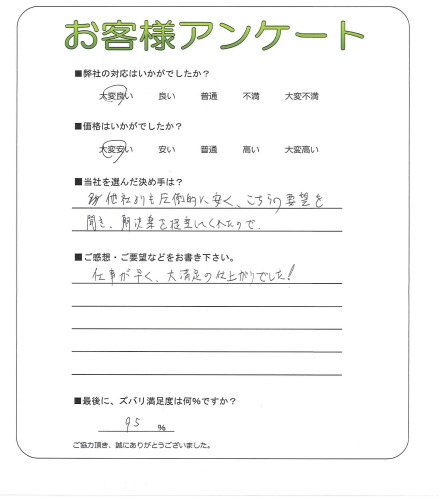 お客様アンケート
■弊社の対応はいかがでしたか?
大変良い 良い 普通 不満 大変不満
■価格はいかがでしたか?
大変安い 安い 普通 高い 大変高い
■当社を選んだ決め手は?
他社よりも圧倒的に安く、こちらの要望を
聞き、解決案を提案してくれたので、
■ご感想・ご要望などをお書き下さい。
仕事が早く、大満足の仕上がりでした!
■最後に、ズバリ満足度は何%ですか?
95 %
ご協力頂き、誠にありがとうございました。